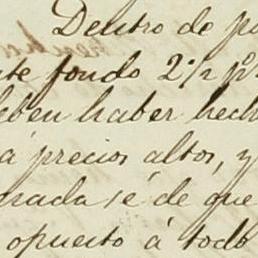 Dentro de po
nte fondo 2½ p%
deben haber hech
á precios altos, y
nada sé de que
opuesto á todo